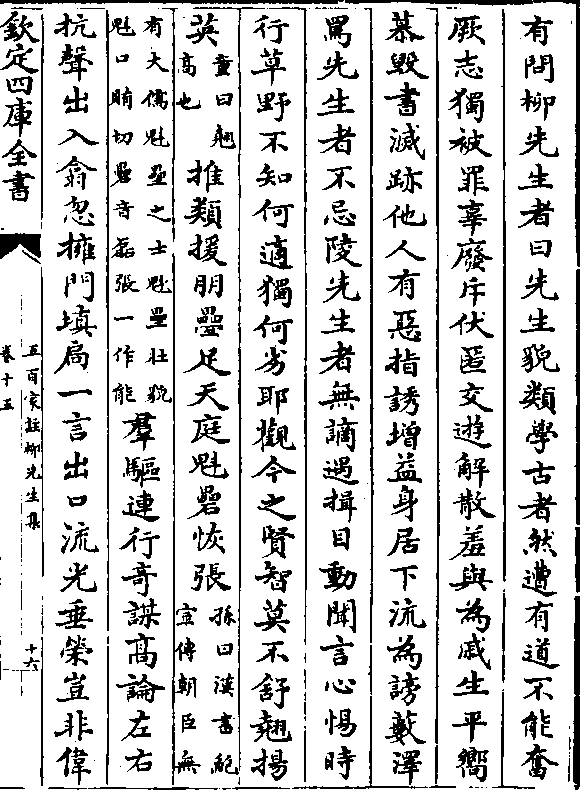 有問柳先生者曰先生貌類學古者然遭有道不能奮
厥志獨被罪辜廢斥伏匿交遊解散羞與為戚生平嚮
慕毀書滅跡他人有惡指誘增益身居下流為謗藪澤
罵先生者不忌陵先生者無謫遇揖目動聞言心惕時
行草野不知何適獨何劣耶觀今之賢智莫不舒翹揚
英童曰翹高也推類援朋疊足天庭魁礨恢張孫曰漢書鮑宣傳朝臣無
有大儒魁壘之士魁壘壯貌魁口賄切壘音磊張一作能羣驅連行奇謀高論左右
抗聲出入翕忽擁門填扃一言出口流光垂榮豈非偉
欽定四庫全書
五百家註柳先生集
卷十五
十六